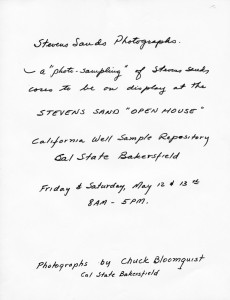 Stevens Sands Photographs.
a "photo-sampling" of Stevens sands
cores to be on display at the
STEVENS SAND "OPEN HOUSE"
California Well Sample Repository
Cal State Bakersfield
Friday & Saturday, May 12 & 13th
8AM - 5PM.
Photographs by Chuck Bloomquist
Cal State Bakersfield